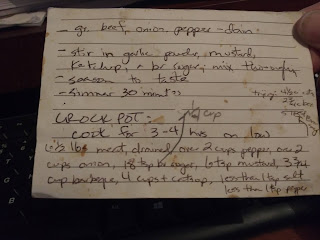 - gr. beef, onion, pepper - drain.
- stir in garlic powder, mustard,
ketchup + br sugar; mix thoroughly
- season to taste
- simmer 30 minutes
1/4 cup
CROCK POT:
cook for 3-4 hrs on low
lbs meat, drained, over 2 cups pepper, over 2
cups onion, 18 tbsp br sugar, 6 tsp mustard, 3 3/4
cup barbeque, 4 cups + catsup, less than 1 tsp salt
less than 1 tsp pepper